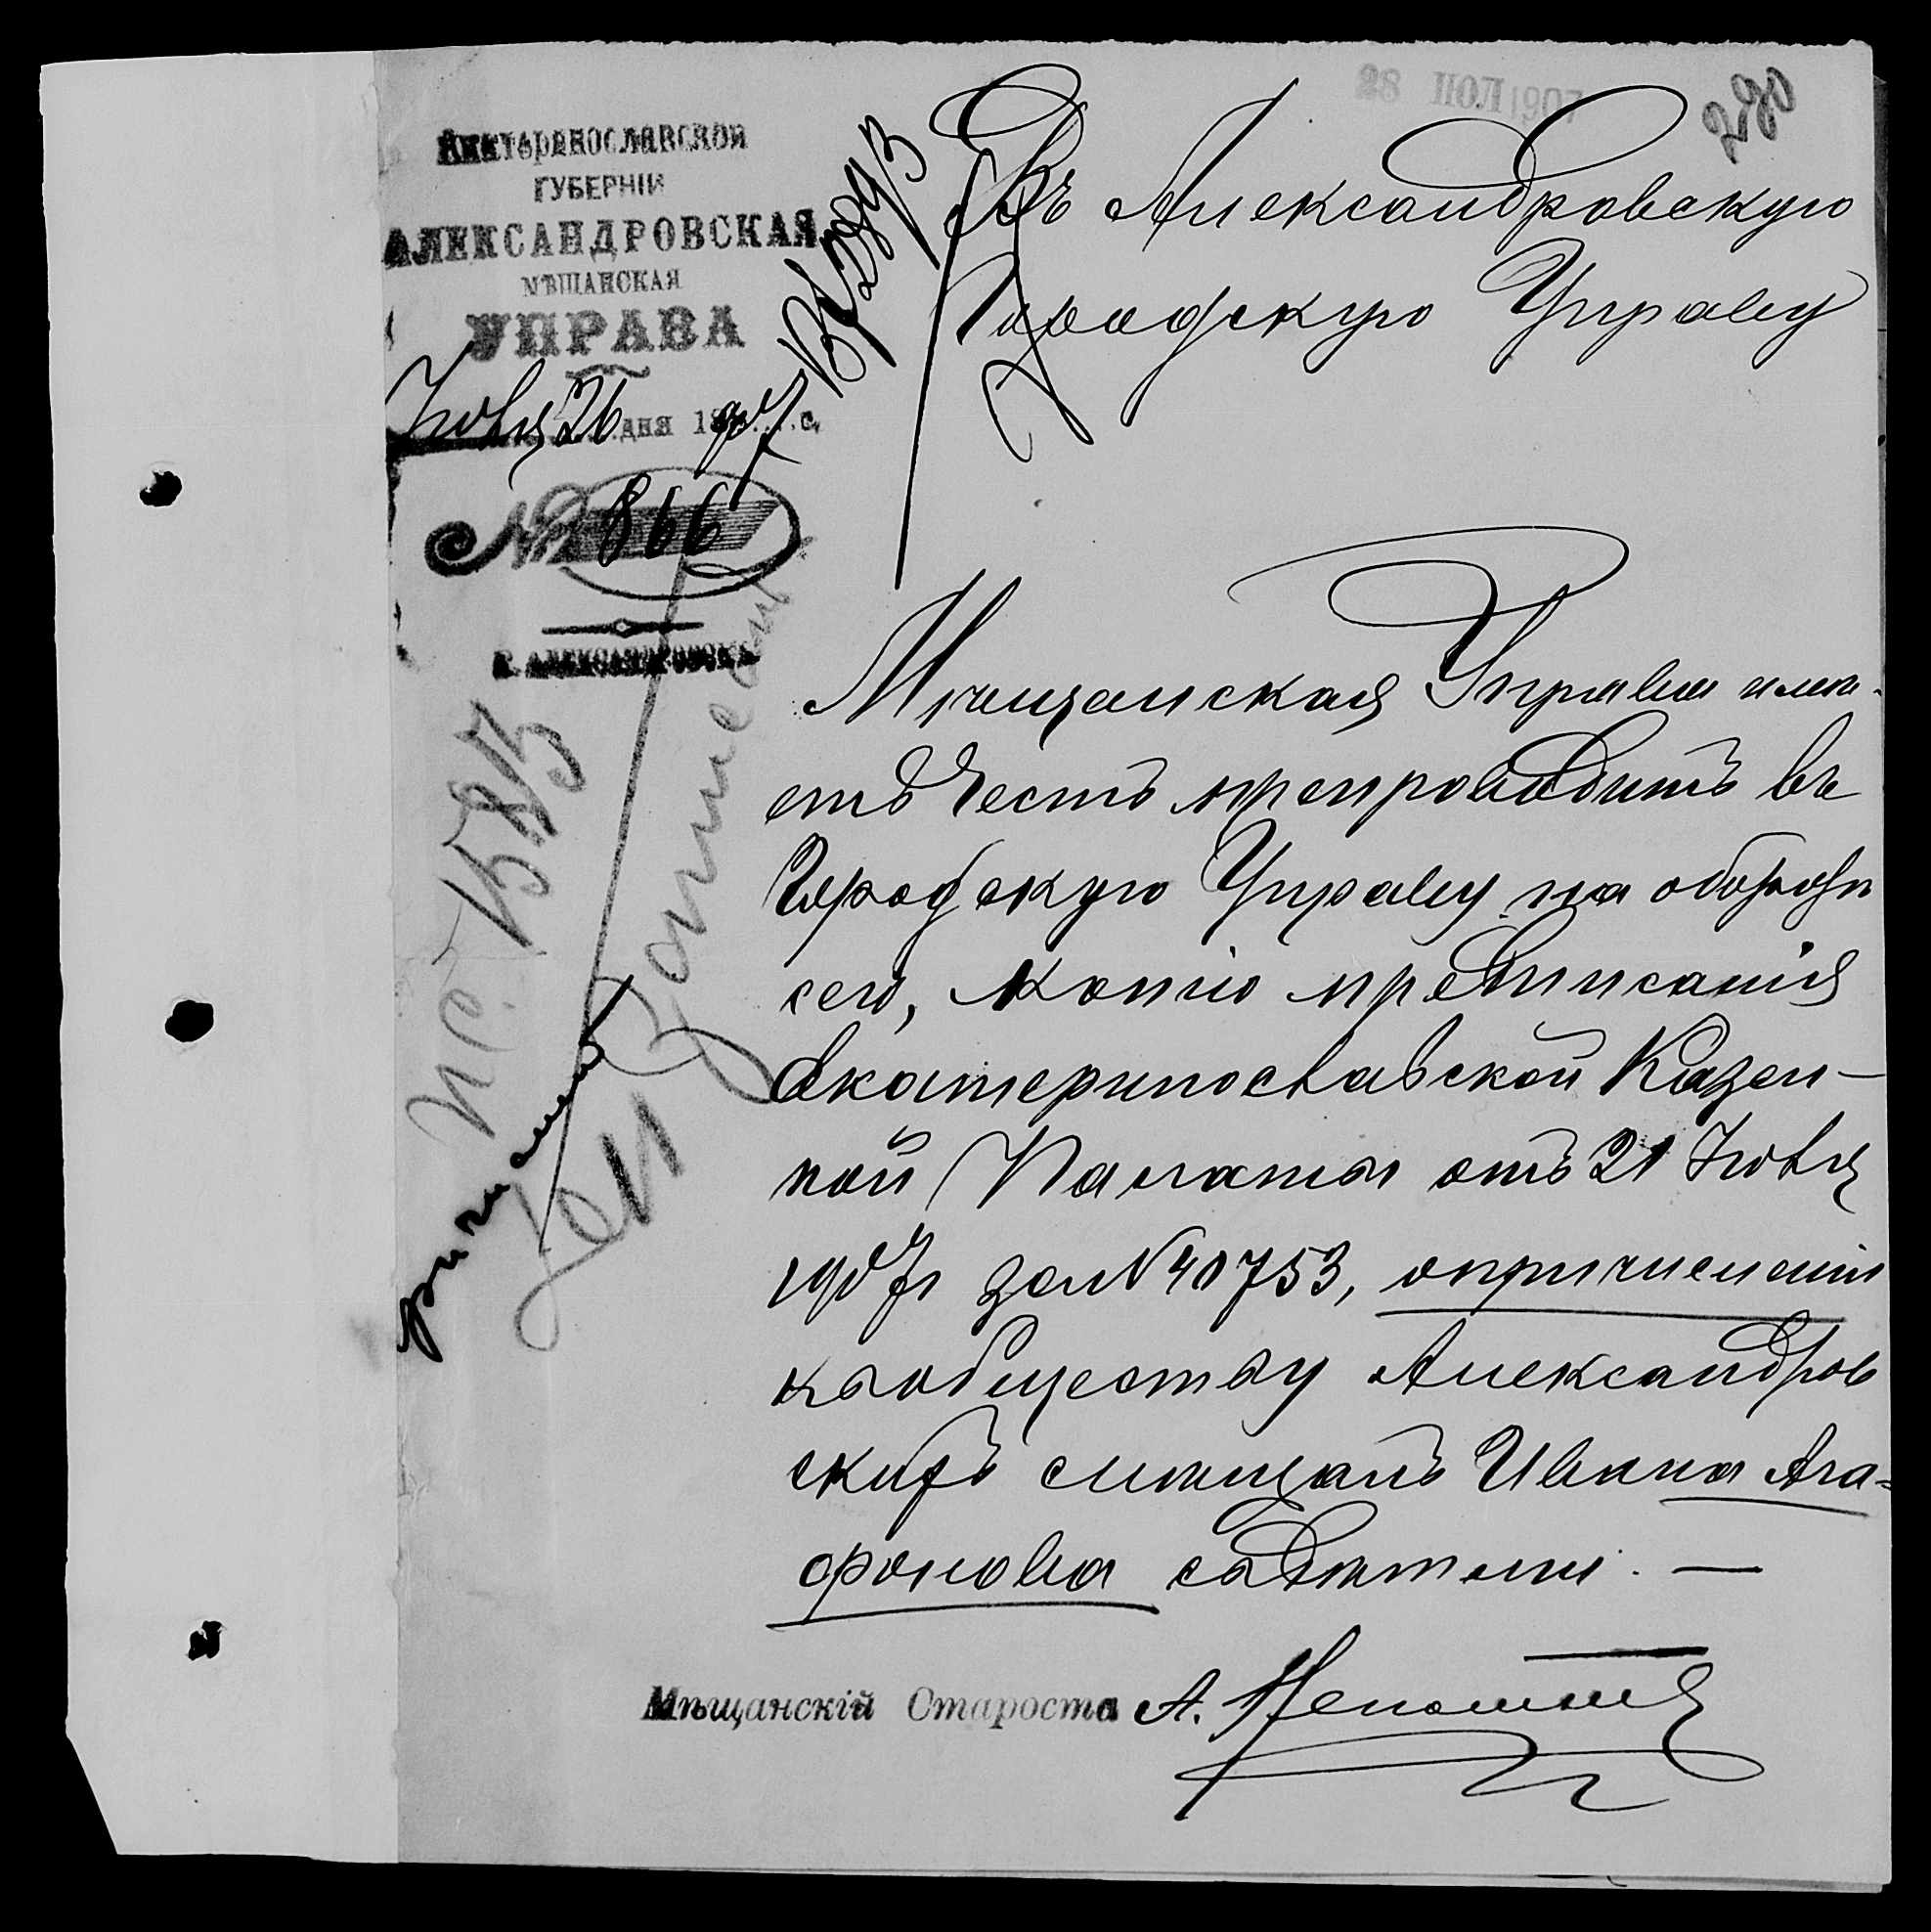 28 ІЮЛ 1907
280
Екатеринославской
ГУБЕРНІИ
АЛЕКСАНДРОВСКАЯ
МѢЩАНСКАЯ
УПРАВА
Іюля 26 дня 1907 г.
№ 866
Г. АЛЕКСАНДРОВСКЪ
Въ Александровскую
Городскую Управу
Мѣщанская Управа имѣ-
етъ честь препроводить въ
Городскую Управу на оборотѣ
сего, копію предписанія
Екатеринославской Казен-
ной Палаты отъ 21 Іюля
1907 г. за № 40753, о причисленіи
къ обществу Александров
скихъ мѣщанъ Ивана Ага-
фонова съ дѣтьми. —
Мѣщанскій Староста А.